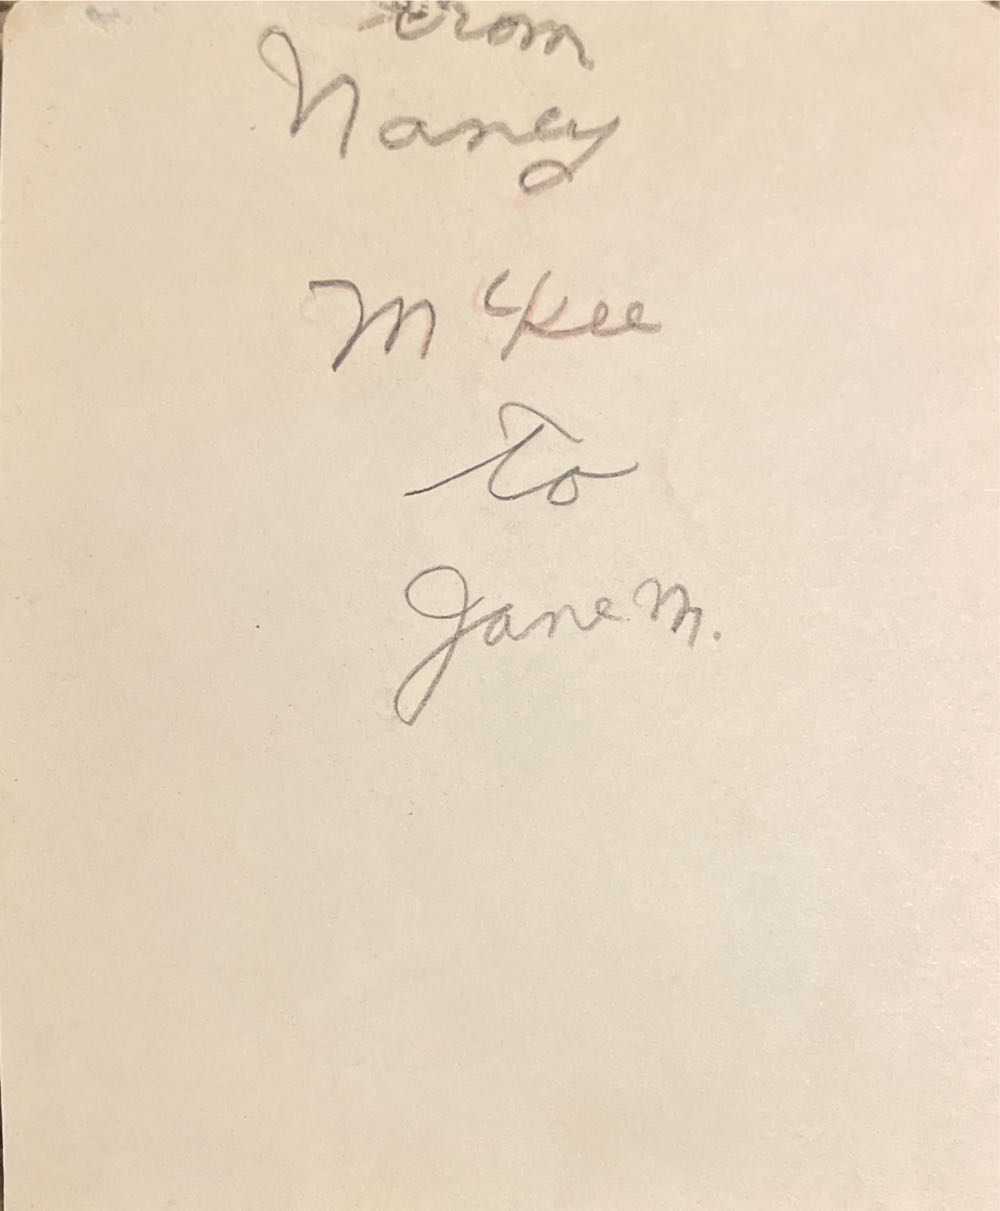 from
Nancy
McKee
to
Jane M.